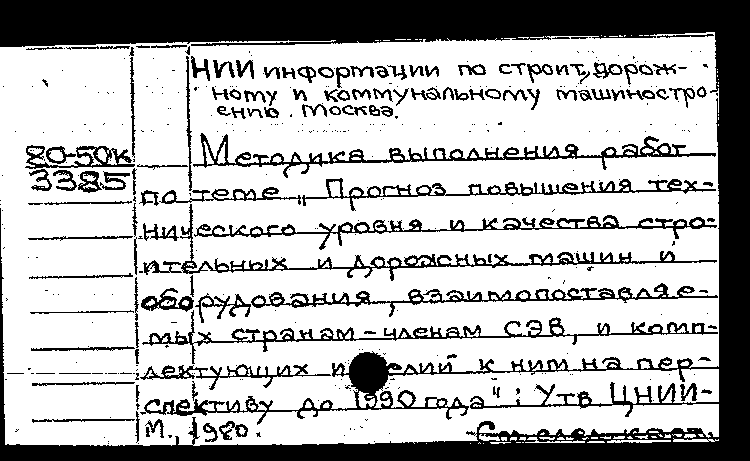 НИИ информации по строит, дорож-
ному и коммунальному машиностро-
ению. Москва.
80-50к
3385
Методика выполнения работ
по теме „Прогноз повышения тех-
нического уровня и качества стро-
ительных и дорожных машин и
оборудования, взаимопоставляе-
мых странам-членам СЭВ, и комп-
лектующих и елий к ним на пер-
спективу до 1990 года": Утв ЦНИИ-
М., 1980.
См след. карт.